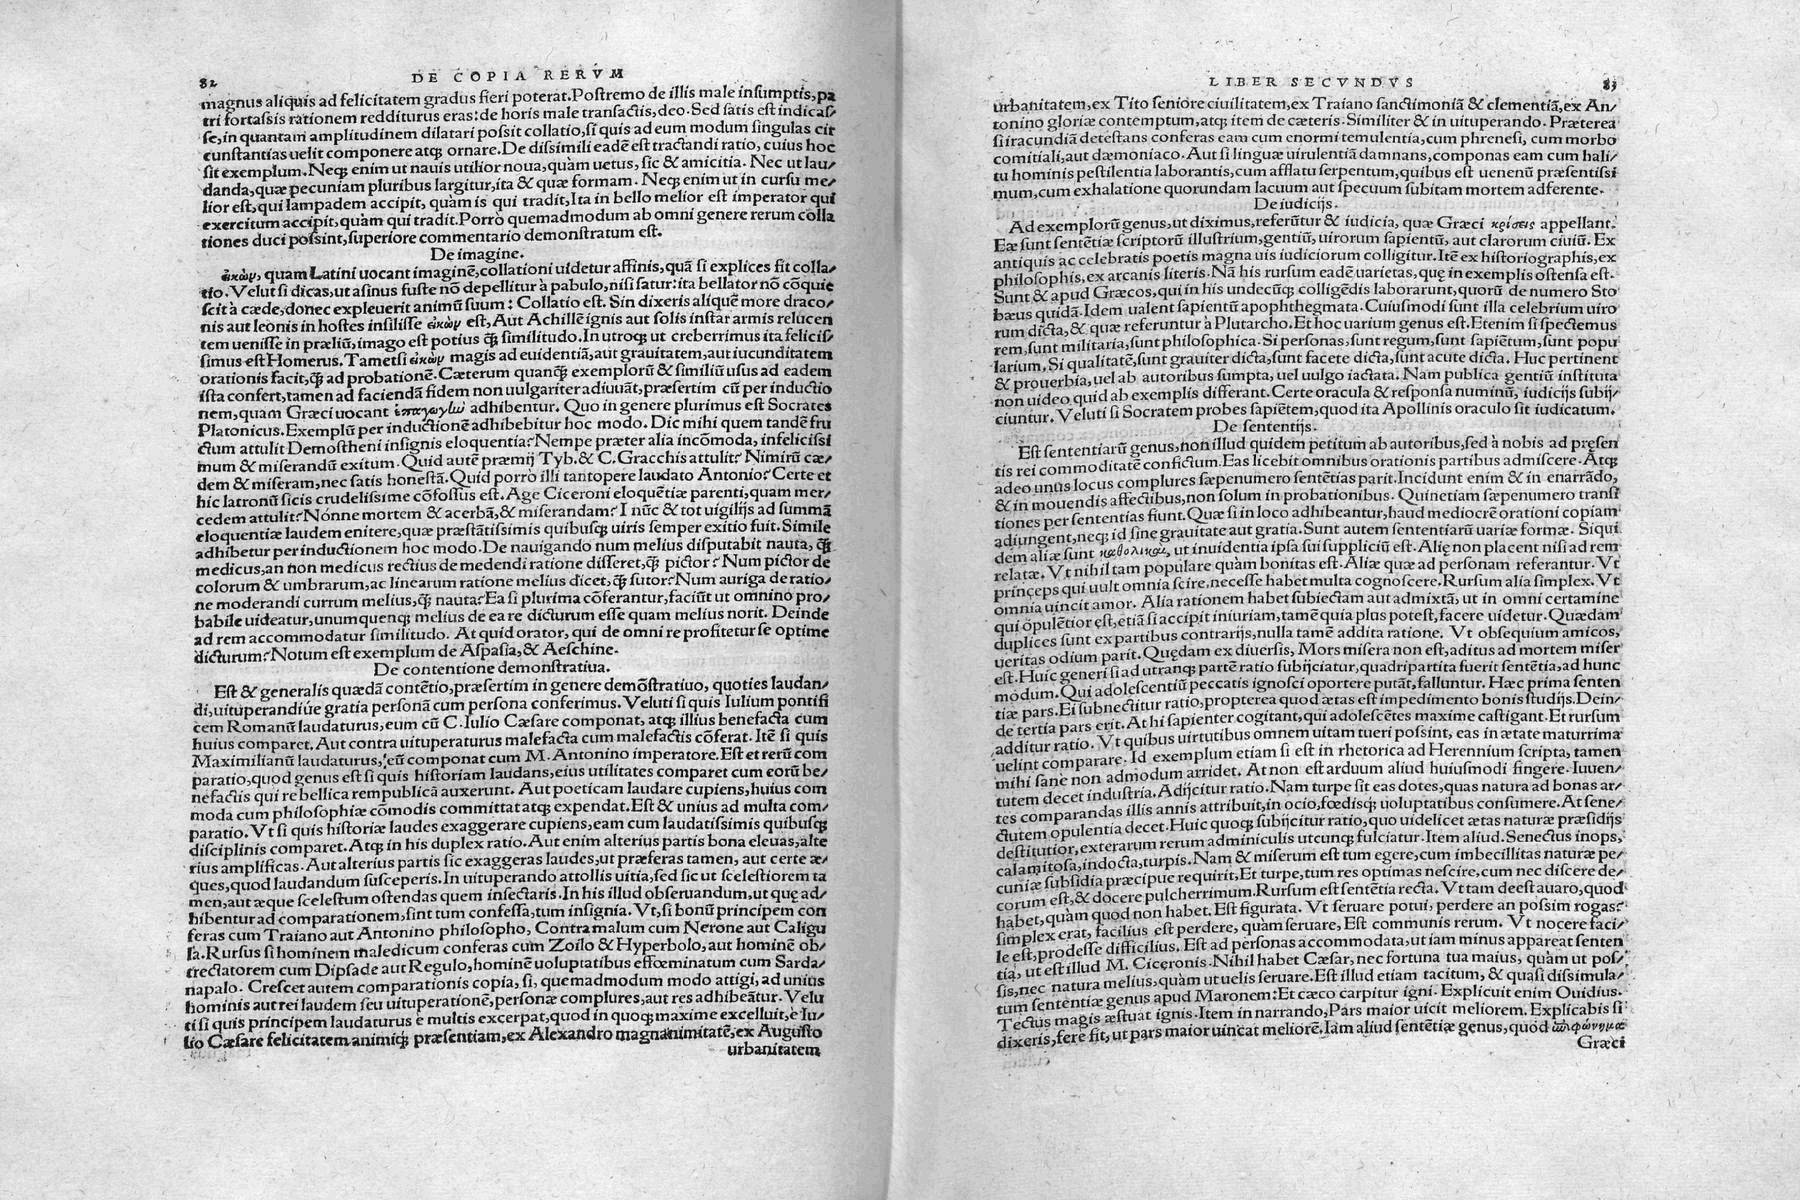 82 DE COPIA RERVM
magnus aliquis ad felicitatem gradus fieri poterat. Postremo de illis male insumptis, pa
tri fortassis rationem redditurus eras: de horis male transactis, deo. Sed satis est indicas/
se, in quantam amplitudinem dilatari possit collatio, si quis ad eum modum singulas cir
cunstantias uelit componere atq; ornare. De dissimili eadē est tractandi ratio, cuius hoc
sit exemplum. Neq; enim ut nauis utilior noua, quàm uetus, sic & amicitia. Nec ut lau/
danda, quæ pecuniam pluribus largitur, ita & quæ formam. Neq; enim ut in cursu me/
lior est, qui lampadem accipit, quàm is qui tradit, Ita in bello melior est imperator qui
exercitum accipit, quàm qui tradit. Porrò quemadmodum ab omni genere rerum colla
tiones duci possint, superiore commentario demonstratum est.
De imagine.
εἰκὼν, quam Latini uocant imaginē, collationi uidetur affinis, quā si explices fit colla/
tio. Velut si dicas, ut asinus fuste nō depellitur à pabulo, nisi satur: ita bellator nō cōquie
scit à cæde, donec expleuerit animū suum: Collatio est. Sin dixeris aliquē more draco/
nis aut leonis in hostes insiliisse εἰκὼν est, Aut Achillē ignis aut solis instar armis relucen
tem uenisse in præliū, imago est potius q̄ similitudo. In utroq; ut creberrimus ita felicis/
simus est Homerus. Tametsi εἰκὼν magis ad euidentiā, aut grauitatem, aut iucunditatem
orationis facit, q̄ ad probationē. Cæterum quanq̄ exemplorū & similiū usus ad eadem
ista confert, tamen ad faciendā fidem non uulgariter adiuuāt, præsertim cū per inductio
nem, quam Græci uocant ἐπαγωγὴν adhibentur. Quo in genere plurimus est Socrates
Platonicus. Exemplū per inductionē adhibebitur hoc modo. Dic mihi quem tandē fru
ctum attulit Demostheni insignis eloquentia? Nempe præter alia incōmoda, infelicissi
mum & miserandū exitum. Quid autē præmij Tyb. & C. Gracchis attulit? Nimirū cæ/
dem & miseram, nec satis honestā. Quid porrò illi tantopere laudato Antonio? Certe et
hic latronū sicis crudelissime cōfossus est. Age Ciceroni eloquētiæ parenti, quam mer/
cedem attulit? Nónne mortem & acerbā, & miserandam? I nūc & tot uigilijs ad summā
eloquentiæ laudem enitere, quæ præstātissimis quibusq; uiris semper exitio fuit. Simile
adhibetur per inductionem hoc modo. De nauigando num melius disputabit nauta, q̄
medicus, an non medicus rectius de medendi ratione disseret, q̄ pictor? Num pictor de
colorum & umbrarum, ac linearum ratione melius dicet, q̄ sutor? Num auriga de ratio/
ne moderandi currum melius, q̄ nauta? Ea si plurima cōferantur, faciūt ut omnino pro/
babile uideatur, unumquenq; melius de ea re dicturum esse quam melius norit. Deinde
ad rem accommodatur similitudo. At quid orator, qui de omni re profitetur se optime
dicturum? Notum est exemplum de Aspasia, & Aeschine.
De contentione demonstratiua.
Est & generalis quædā contētio, præsertim in genere demōstratiuo, quoties laudan/
di, uituperandiúe gratia personā cum persona conferimus. Veluti si quis Iulium pontifi
cem Romanū laudaturus, eum cū C. Iulio Cæsare componat, atq; illius benefacta cum
huius comparet. Aut contra uituperaturus malefacta cum malefactis cōferat. Itē si quis
Maximilianū laudaturus, eū componat cum M. Antonino imperatore. Est et rerū com
paratio, quod genus est si quis historiam laudans, eius utilitates comparet cum eorū be/
nefactis qui re bellica rempublicā auxerunt. Aut poeticam laudare cupiens, huius com
moda cum philosophiæ cōmodis committat atq; expendat. Est & unius ad multa com/
paratio. Vt si quis historiæ laudes exaggerare cupiens, eam cum laudatissimis quibusq;
disciplinis comparet. Atq; in his duplex ratio. Aut enim alterius partis bona eleuas, alte
rius amplificas. Aut alterius partis sic exaggeras laudes, ut præferas tamen, aut certe æ/
ques, quod laudandum susceperis. In uituperando attollis uitia, sed sic ut scelestiorem ta
men, aut æque scelestum ostendas quem insectaris. In his illud obseruandum, ut quę ad/
hibentur ad comparationem, sint tum confessa, tum insignia. Vt, si bonū principem con
feras cum Traiano aut Antonino philosopho, Contra malum cum Nerone aut Caligu
la. Rursus si hominem maledicum conferas cum Zoilo & Hyperbolo, aut hominē ob/
trectatorem cum Dipsade aut Regulo, hominē uoluptatibus effœminatum cum Sarda/
napalo. Crescet autem comparationis copia, si, quemadmodum modo attigi, ad unius
hominis aut rei laudem seu uituperationē, personæ complures, aut res adhibeātur. Velu
ti si quis principem laudaturus è multis excerpat, quod in quoq; maxime excelluit, è Iu/
lio Cæsare felicitatem animiq; præsentiam, ex Alexandro magnanimitatē, ex Augusto
urbanitatem
LIBER SECVNDVS 83
urbanitatem, ex Tito seniore ciuilitatem, ex Traiano sanctimoniā & clementiā, ex An/
tonino gloriæ contemptum, atq; item de cæteris. Similiter & in uituperando. Præterea
si iracundiā detestans conferas eam cum enormi temulentia, cum phrenesi, cum morbo
comitiali, aut dæmoniaco. Aut si linguæ uirulentiā damnans, componas eam cum hali/
tu hominis pestilentia laborantis, cum afflatu serpentum, quibus est uenenū præsentissi
mum, cum exhalatione quorundam lacuum aut specuum subitam mortem adferente.
De iudicijs.
Ad exemplorū genus, ut diximus, referūtur & iudicia, quæ Græci κρίσεις appellant.
Eæ sunt sentētiæ scriptorū illustrium, gentiū, uirorum sapientū, aut clarorum ciuiū. Ex
antiquis ac celebratis poetis magna uis iudiciorum colligitur. Itē ex historiographis, ex
philosophis, ex arcanis literis. Nā his rursum eadē uarietas, quę in exemplis ostensa est.
Sunt & apud Græcos, qui in his undecūq; colligēdis laborarunt, quorū de numero Sto
bæus quidā. Idem ualent sapientū apophthegmata. Cuiusmodi sunt illa celebrium uiro
rum dicta, & quæ referuntur à Plutarcho. Et hoc uarium genus est. Etenim si spectemus
rem, sunt militaria, sunt philosophica. Si personas, sunt regum, sunt sapiētum, sunt popu
larium. Si qualitatē, sunt grauiter dicta, sunt facete dicta, sunt acute dicta. Huc pertinent
& prouerbia, uel ab autoribus sumpta, uel uulgo iactata. Nam publica gentiū instituta
non uideo quid ab exemplis differant. Certe oracula & responsa numinū, iudicijs subij/
ciuntur. Veluti si Socratem probes sapiētem, quod ita Apollinis oraculo sit iudicatum.
De sententijs.
Est sententiarū genus, non illud quidem petitum ab autoribus, sed à nobis ad pręsen
tis rei commoditatē confictum. Eas licebit omnibus orationis partibus admiscere. Atq;
adeo unus locus complures sæpenumero sentētias parit. Incidunt enim & in enarrādo,
& in mouendis affectibus, non solum in probationibus. Quinetiam sæpenumero transi
tiones per sententias fiunt. Quæ si in loco adhibeantur, haud mediocrē orationi copiam
adiungent, neq; id sine grauitate aut gratia. Sunt autem sententiarū uariæ formæ. Siqui
dem aliæ sunt καθολικαὶ, ut inuidentia ipsa sui supplicīū est. Alię non placent nisi ad rem
relatæ. Vt nihil tam populare quàm bonitas est. Aliæ quæ ad personam referantur. Vt
princeps qui uult omnia scire, necesse habet multa cognoscere. Rursum alia simplex. Vt
omnia uincit amor. Alia rationem habet subiectam aut admixtā, ut in omni certamine
qui opulētior est, etiā si accipit iniuriam, tamē quia plus potest, facere uidetur. Quædam
duplices sunt ex partibus contrarijs, nulla tamē addita ratione. Vt obsequium amicos,
ueritas odium parit. Quędam ex diuersis, Mors misera non est, aditus ad mortem miser
est. Huic generi si ad utranq; partē ratio subijciatur, quadripartita fuerit sentētia, ad hunc
modum. Qui adolescentiū peccatis ignosci oportere putāt, falluntur. Hæc prima senten
tiæ pars. Ei subnectitur ratio, propterea quod ætas est impedimento bonis studijs. Dein/
de tertia pars erit. At hi sapienter cogitant, qui adolescētes maxime castigant. Et rursum
additur ratio. Vt quibus uirtutibus omnem uitam tueri possint, eas in ætate maturrima
uelint comparare. Id exemplum etiam si est in rhetorica ad Herennium scripta, tamen
mihi sane non admodum arridet. At non est arduum aliud huiusmodi fingere. Iuuen/
tutem decet industria. Adijcitur ratio. Nam turpe sit eas dotes, quas natura ad bonas ar/
tes comparandas illis annis attribuit, in ocio, fœdisq; uoluptatibus consumere. At sene/
ctutem opulentia decet. Huic quoq; subijcitur ratio, quo uidelicet ætas naturæ præsidijs
destitutior, exterarum rerum adminiculis utcunq; fulciatur. Item aliud. Senectus inops,
calamitosa, indocta, turpis. Nam & miserum est tum egere, cum imbecillitas naturæ pe/
cuniæ subsidia præcipue requirit, Et turpe, tum res optimas nescire, cum nec discere de/
corum est, & docere pulcherrimum. Rursum est sentētia recta. Vt tam deest auaro, quod
habet, quàm quod non habet. Est figurata. Vt seruare potui, perdere an possim rogas?
simplex erat, facilius est perdere, quàm seruare, Est communis rerum. Vt nocere faci/
le est, prodesse difficilius. Est ad personas accommodata, ut iam minus appareat senten
tia, ut est illud M. Ciceronis. Nihil habet Cæsar, nec fortuna tua maius, quàm ut pos/
sis, nec natura melius, quàm ut uelis seruare. Est illud etiam tacitum, & quasi dissimula/
tum sententiæ genus apud Maronem: Et cæco carpitur igni. Explicuit enim Ouidius.
Tectus magis æstuat ignis. Item in narrando, Pars maior uicit meliorem. Explicabis si
dixeris, fere fit, ut pars maior uincat meliorē. Iam aliud sentētiæ genus, quod ἐπιφώνημα
Græci